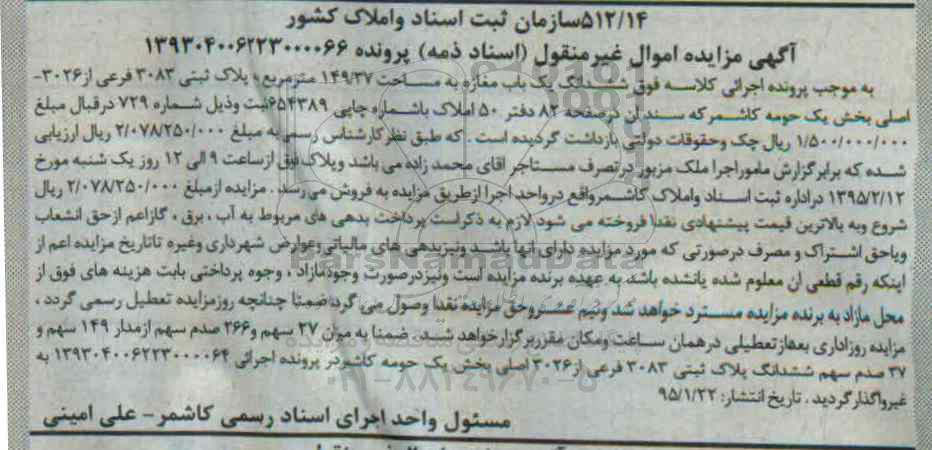 ۵۱۲/۱۴سازمان ثبت اسناد واملاک کشور
آگهی مزایده اموال غیرمنقول (اسناد ذمه) پرونده ۱۳۹۳۰۴۰۰۶۲۲۳۰۰۰۰۶۶
به موجب پرونده اجرائی کلاسه فوق ششدانگ یک باب مغازه به مساحت ۱۴۹/۳۷ مترمربع، پلاک ثبتی ۳۰۸۳ فرعی از۳۰۲۶-
اصلی بخش یک حومه کاشمر که سند آن درصفحه ۸۲ دفتر ۵۰ املاک باشماره چاپی ۶۵۴۳۸۹ثبت وذیل شماره ۷۲۹ درقبال مبلغ
۱/۵۰۰/۰۰۰/۰۰۰ ریال چک وحقوقات دولتی بازداشت گردیده است . که طبق نظر کارشناس رسمی به مبلغ ۲/۰۷۸/۲۵۰/۰۰۰ ریال ارزیابی
شده که برابر گزارش مامور اجرا ملک مزبور درتصرف مستاجر اقای محمد زاده می باشد وپلاک فوق از ساعت ۹ الی ۱۲ روز یک شنبه مورخ
۱۳۹۵/۲/۱۲ دراداره ثبت اسناد واملاک کاشمرواقع درواحد اجرا ازطریق مزایده به فروش می رسد . مزایده ازمبلغ ۲/۰۷۸/۲۵۰/۰۰۰ ریال
شروع وبه بالاترین قیمت پیشنهادی نقدا فروخته می شود لازم به ذکراست پرداخت بدهی های مربوط به آب ، برق ، گازاعم ازحق انشعاب
ویاحق اشتراک و مصرف درصورتی که مورد مزایده دارای آنها باشد ونیزبدهی های مالیاتی وعوارض شهرداری وغیره تاتاریخ مزایده اعم از
اینکه رقم قطعی ان معلوم شده یانشده باشد به عهده برنده مزایده است ونیزدرصورت وجودمازاد ، وجوه پرداختی بابت هزینه های فوق از
محل مازاد به برنده مزایده مسترد خواهد شد ونیم عشروحق مزایده نقدا وصول می گردد ضمنا چنانچه روزمزایده تعطیل رسمی گردد ،
مزایده روزاداری بعدازتعطیلی درهمان ساعت ومکان مقرربرگزارخواهد شد . ضمنا به میزان ۲۷ سهم و۲۶۶ صدم سهم ازمدار ۱۴۹ سهم و
۳۷ صدم سهم ششدانگ پلاک ثبتی ۳۰۸۳ فرعی از۳۰۲۶ اصلی بخش یک حومه کاشمردر پرونده اجرائی ۱۳۹۳۰۴۰۰۶۲۲۳۰۰۰۰۶۴ به
غیرواگذارگردید . تاریخ انتشار: ۹۵/۱/۲۲
مسئول واحد اجرای اسناد رسمی کاشمر- علی امینی
ParsNamadData
۰۲۱-۸۸۳۴۹۶۷۰-۵